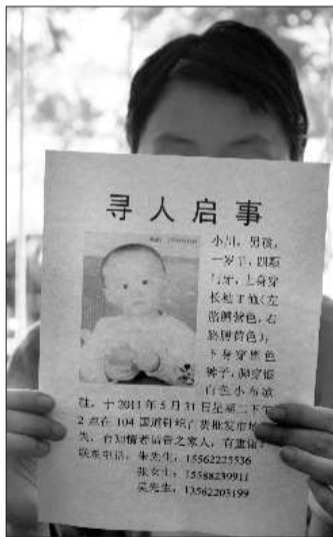 寻人启事
小川，男孩，
一岁半，四颗
门牙，上身穿
长袖T恤（左
胳膊黄色，右
胳膊黄色），
下身穿黑色
裤子，脚穿银
白色小布凉
鞋，于2011年5月31日星期二下午
2点在104国道针织百货批发市场
失，有知情者请告之家人，有重谢
联系电话，朱先生，15562225536
张女士，15588239911
吴先生，13562203199